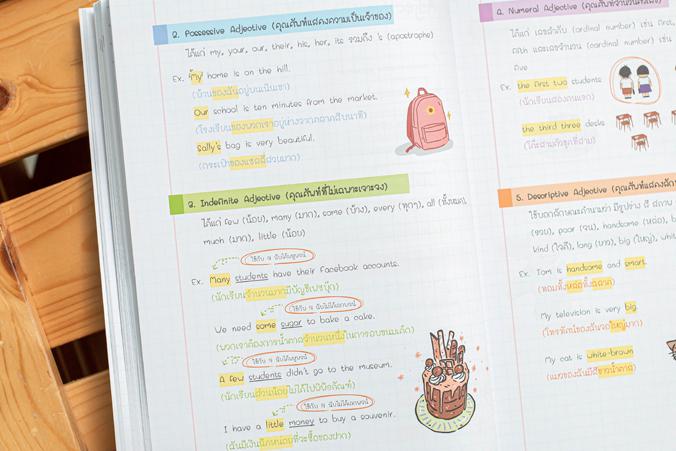 2. Possessive Adjective (คุณศัพท์แสดงความเป็นเจ้าของ)
ได้แก่ my, your, our, their, his, her, its รวมถึง 's (apostrophe)
Ex. My home is on the hill.
(บ้านของฉันอยู่บนเนินเขา)
Our school is ten minutes from the market.
(โรงเรียนของพวกเราอยู่ห่างจากตลาดสิบนาที)
Sally's bag is very beautiful.
(กระเป๋าของแซลลี่สวยมาก)
3. Indefinite Adjective (คุณศัพท์ที่ไม่เฉพาะเจาะจง)
ได้แก่ few (น้อย), many (มาก), some (บ้าง), every (ทุกๆ), all (ทั้งหมด),
much (มาก), little (น้อย)
ใช้กับ N นับได้พหูพจน์
Ex. Many students have their Facebook accounts.
(นักเรียนจำนวนมากมีบัญชีเฟซบุ๊ก)
ใช้กับ N นับไม่ได้เอกพจน์
We need some sugar to bake a cake.
(พวกเราต้องการน้ำตาลจำนวนหนึ่งในการอบขนมเค้ก)
ใช้กับ N นับได้พหูพจน์
A few students didn't go to the museum.
(นักเรียนส่วนน้อยไม่ได้ไปพิพิธภัณฑ์)
ใช้กับ N นับไม่ได้เอกพจน์
I have a little money to buy a souvenir.
(ฉันมีเงินนิดหน่อยที่จะซื้อของฝาก)
4. Numeral Adjective (คุณศัพท์จำนวนนับ)
ได้แก่ เลขลำดับ (ordinal number) เช่น first,
fifth และเลขจำนวน (cardinal number) เช่น
five
Ex. the first two students
(นักเรียนสองคนแรก)
the third three desks
(โต๊ะสามตัวชุดที่สาม)
5. Descriptive Adjective (คุณศัพท์แสดงลักษ
ใช้บอกลักษณะคำนามว่า มีรูปร่าง สี สภาพ
(รวย), poor (จน), handsome (หล่อ), b
kind (ใจดี), long (ยาว), big (ใหญ่), white
Ex. Tom is handsome and smart.
(ทอมทั้งหล่อทั้งฉลาด)
My television is very big.
(โทรทัศน์ของฉันจอใหญ่มาก)
My cat is white-brown
(แมวของฉันมีสีขาวน้ำตาล)